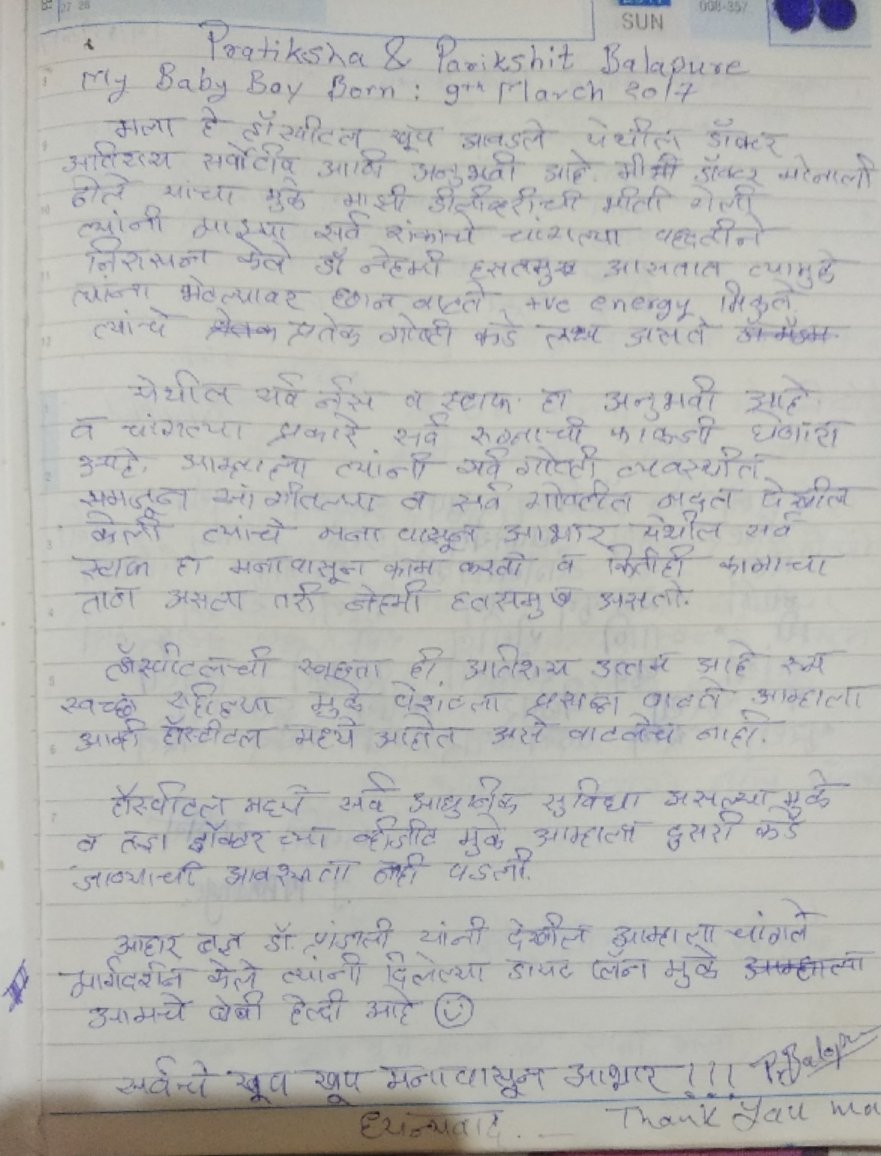 SUN
008-357
27 28
Pratiksha & Parikshit Balapure
My Baby Boy Born : 9th March 2017
मला हे हॉस्पीटल खूप आवडले येथील डॉक्टर
अतिशय सर्वोत्तीव आणि अनुभवी आहे. मीमी डॉक्टर मोनाली
होले यांच्या मुळे माझी डीलीव्हरीची भीती गेली
त्यांनी माझ्या सर्व शंकाचे चांगल्या पध्दतीने
निरासन केले डॉ नेहमी हसतमुख आसतात त्यामुळे
त्यांना भेटल्यावर छान वाटते, +ve energy मिळते
त्यांचे प्रतेक गोष्टी कडे लक्ष असते
येथील सर्व र्नस व स्टाफ हा अनुभवी आहे
व चांगल्या प्रकारे सर्व रुग्नाची काळजी घेणारा
आहे. आम्हाला त्यांनी सर्व गोष्टी व्यवस्थीत
समजून सांगीतल्या व सर्व गोष्टीत मदत देखील
केली त्यांचे मना पासून आभार येथील सर्व
स्टाफ हा मनापासून काम करतो व कितीही कामाचा
ताण असला तरी नेहमी हसतमुख असतो.
हॉस्पीटलची स्वछता ही अतिशय उत्तम आहे रूम
स्वच्छ राहिल्या मुळे पेशंटला प्रसन्न वाटते आम्हाला
आम्ही हॉस्पीटल मध्ये आहोत असे वाटलेच नाही.
हॉस्पीटल मध्ये सर्व आधुनीक सुविधा असल्या मुळे
व तज्ञ डॉक्टर च्या व्हीजीट मुळे आम्हाला दुसरी कडे
जाण्याची आवश्यता नही पडली.
आहार तज्ञ डॉ प्रांजली यांनी देखील आम्हाला चांगले
मार्गदर्शन केले त्यांनी दिलेल्या डायट प्लॅन मुळे आम्हाला
आमचे बेबी हेल्दी आहे
सर्वांचे खूप खूप मनापासून आभार !!! PrBalapu
धन्यवाद. Thank You ma